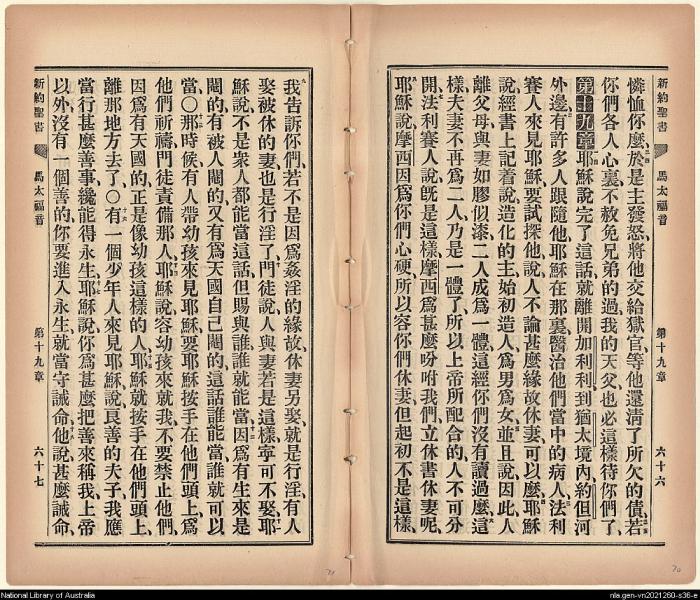 新約聖書 馬太福音 第十九章 六十六
憐恤你麼、於是主發怒、將他交給獄官、等他還清了所欠的債、若
你們各人心裏不赦免兄弟的過、我的天父也必這樣待你們了、
第十九章耶穌說完了這話、就離開加利利、到猶太境內、約但河
外邊、有許多人跟隨他、耶穌在那裏醫治他們當中的病人、法利
賽人來見耶穌、要試探他、說、人不論甚麼緣故休妻、可以麼、耶穌
說、經書上記着說、造化的主始初造人、爲男爲女、並且說、因此人
離父母、與妻如膠似漆、二人成爲一體、這經你們沒有讀過麼、這
樣夫妻不再爲二人、乃是一體了、所以上帝所配合的、人不可分
開、法利賽人說、旣是這樣、摩西爲甚麼吩咐我們、立休書休妻呢、
耶穌說、摩西因爲你們心硬、所以容你們休妻、但起初不是這樣、
我告訴你們、若不是因爲姦淫的緣故休妻另娶、就是行淫、有人
娶被休的妻、也是行淫了、門徒說、人與妻若是這樣、寧可不娶、耶
穌說、不是衆人都能當這話、但賜與誰、誰就能當、因爲有生來是
閹的、有被人閹的、又有爲天國自己閹的、這話誰能當、誰就可以
當○那時候、有人帶幼孩來見耶穌、要耶穌按手在他們頭上、爲
他們祈禱、門徒責備那人、耶穌說、容幼孩來就我、不要禁止他們、
因爲有天國的、正是像幼孩這樣的人、耶穌就按手在他們頭上、
離那地方去了、○有一個少年人來見耶穌說、良善的夫子、我應
當行甚麼善事、纔能得永生、耶穌說、你爲甚麼把善來稱我、上帝
以外、沒有一個善的、你要進入永生、就當守誡命、他說、甚麼誡命、
新約聖書 馬太福音 第十九章 六十七
70
National Library of Australia
nla.gen-vn2021260-s36-e